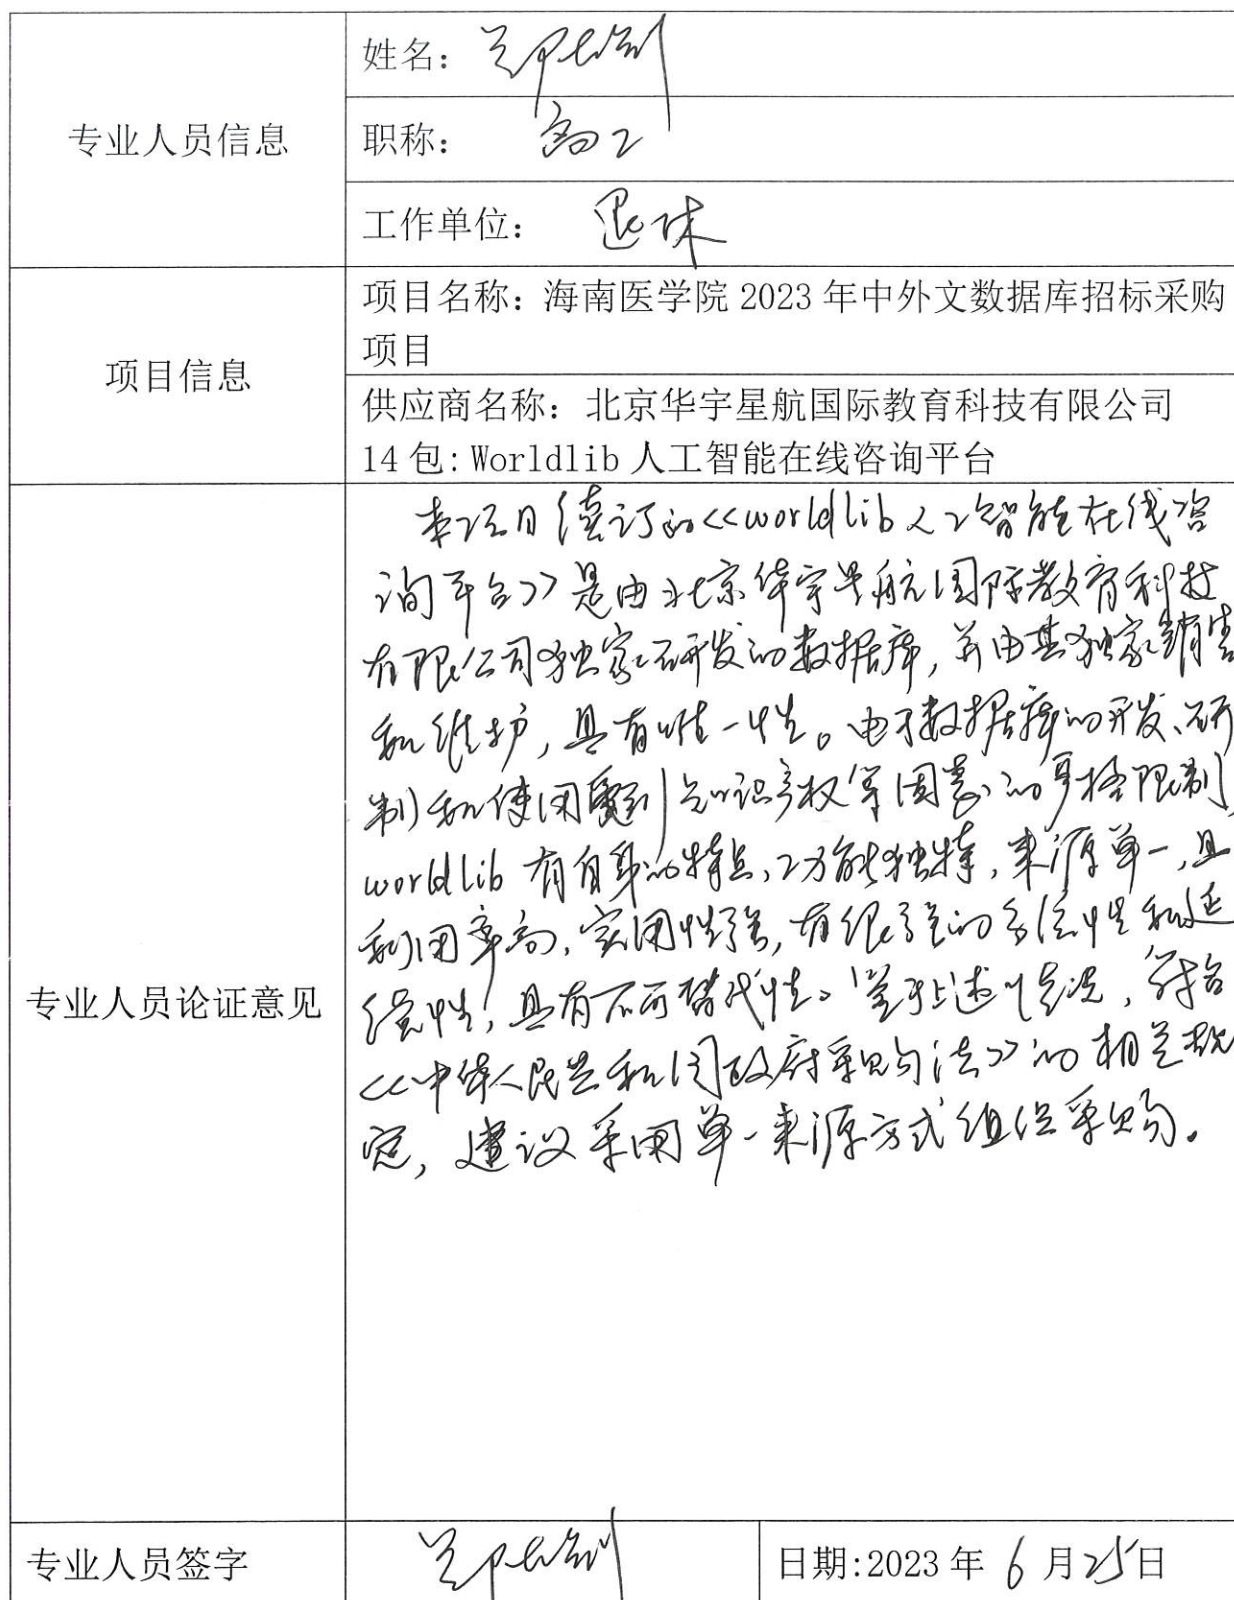 专业人员信息
姓名: 郑
职称: 高工
工作单位: 退休
项目信息
项目名称: 海南医学院 2023 年中外文数据库招标采购
项目
供应商名称: 北京华宇星航国际教育科技有限公司
14 包: Worldlib 人工智能在线咨询平台
专业人员论证意见
本项目续订的<<worldlib人工智能在线咨
询平台>>是由北京华宇星航国际教育科技
有限公司独家研发的数据库,并由其独家销售
和维护,具有唯一性。由于数据库的开发、研
制和使用受到知识产权等因素的严格限制,
worldlib 有自身的特点,功能独特,来源单一,且
利用率高,实用性强,有很强的系统性和连
续性,具有不可替代性。鉴于上述情况,符合
<<中华人民共和国政府采购法>>的相关规
定,建议采用单一来源方式组织采购。
专业人员签字
郑
日期:2023 年 6 月 25 日